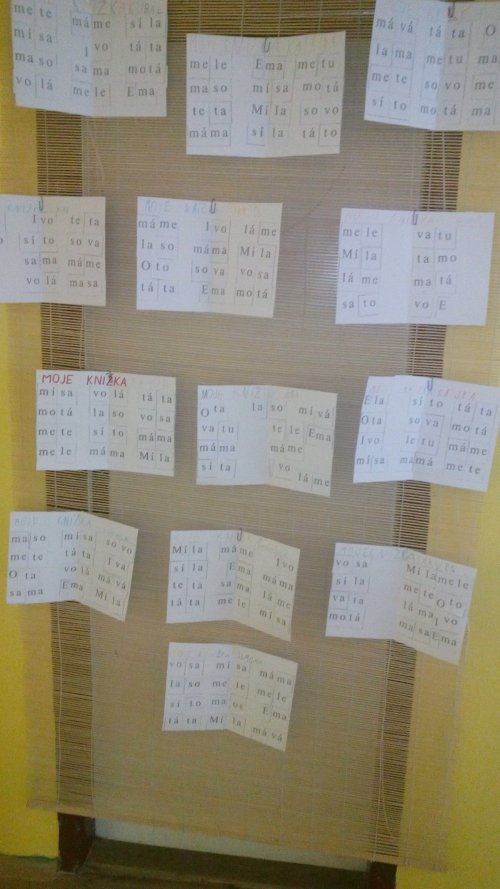 me te má me sí la
ma so vo tá ta
mí sa ma mo tá
vo lá me le Ema
me le Ema me tu
ma so mí sa mo tá
te ta Mí la so vo
má ma sí la tá to
má vá tá ta O
la ma me le
me te so vo má
sí to mo tá ma
Ivo te ta
sí to so va
sa ma má me
vo lá ma sa
má me Ivo lá me
la so má ma Mí la
O to so va vo sa
tá ta Ema mo tá
me le va tu
Mí la ta mo
lá me ma tá
sa to vo E
MOJE KNÍŽKA
mí sa vo lá tá ta
mo tá la so vo sa
me te sí to má ma
me le má ma Mí la
MOJE KNÍŽKA
O ta la so mí vá
va tu te le Ema
má ma má me
sí ta vo lá me
Ela sí to tá ta
O ta so va mo tá
Ivo le tu má me
mí sa ma má me te
KNÍŽKA
ma so mí sa so vo
me te tá ta I va
O ta vo lá má vá
sa ma Ema Mí la
Mí la má me Ivo
sí la Ema má ma
te tá sa ma lá me
tá ta me le mí sa
vo sa Mí la me le
sí la me te O to
va ta lá ma I vo
mo tá ma sa Ema
vo sa mí sa má ma
la so me te me le
sí to ma os Ema
tá ta Mí la má vá